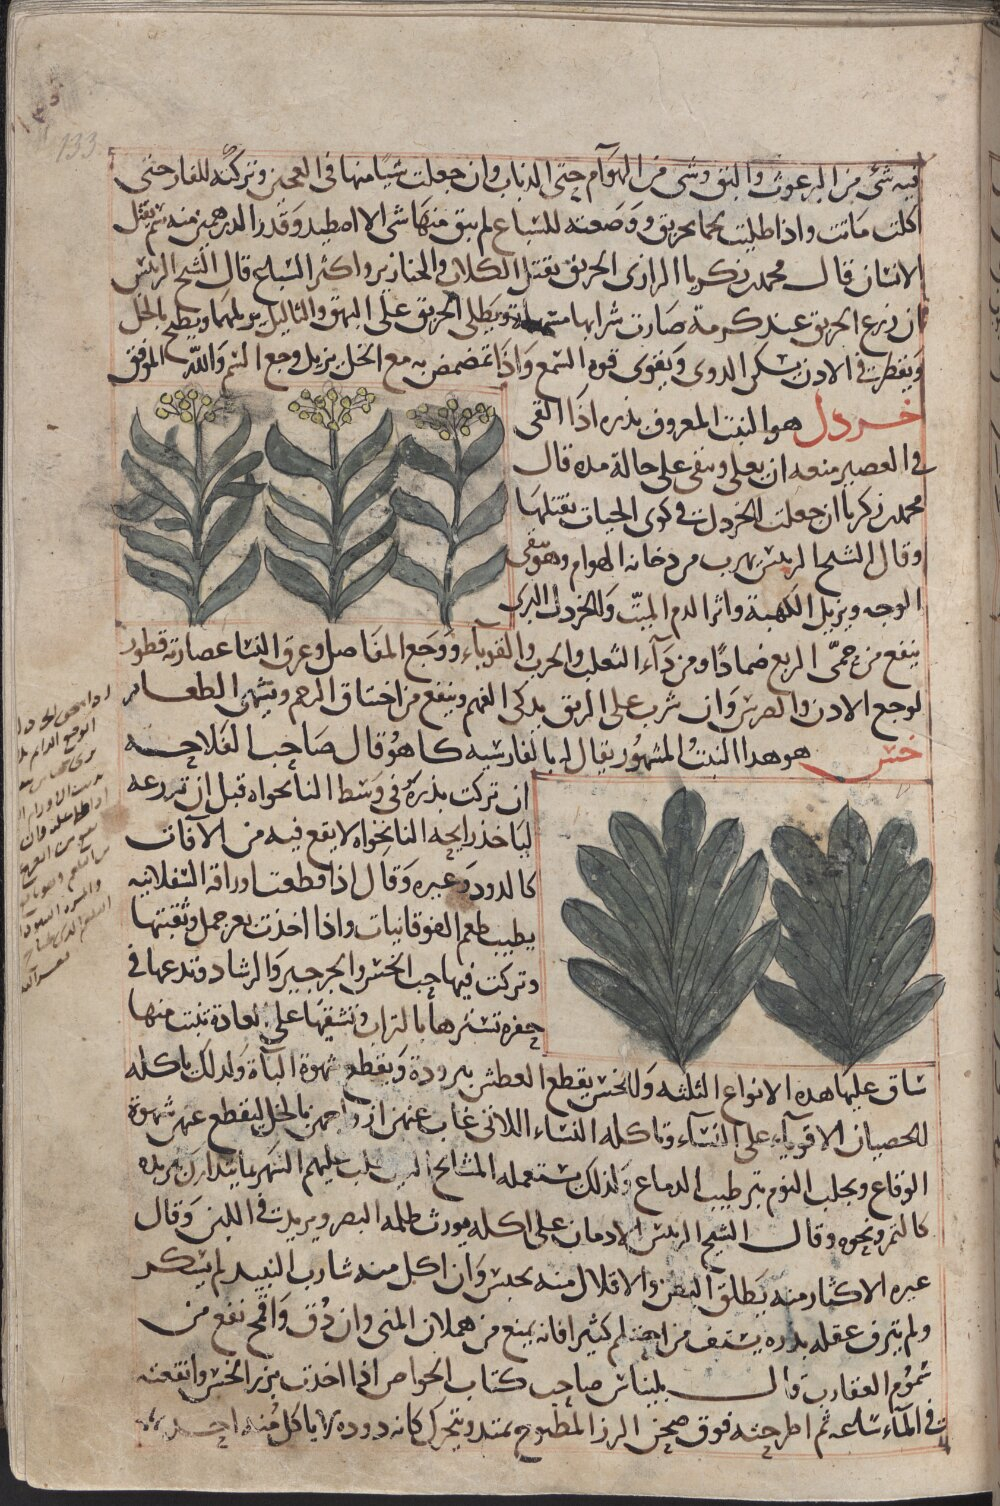 133
فيه شئ من البرغوث والبق وشئ من الهوام حتى الذباب وان جعلت شيا منها في العجين وتركته للفار حتى
اكلت ماتت واذا طليت لحما بخربق ووضعته للسباع لم يبق منها شى الا اصطيد وقدر الدرهمين منه يقتل
الانسان قال محمد بن زكريا الرازى الخربق يقتل الكلاب والخنازير واكثر السباع قال الشيخ الرئيس
ان زرع الخربق عند كرمة صارت شرابها مسهلة ويطلى الخربق على البهق والثاليل يزيلهما ويطبخ بالخل
ويقطر في الاذن يسكن الدوى ويقوى قوة السمع واذا تمضمض به مع الخل يزيل وجع السن والله الموفق
خردل هو النبت المعروف بذره اذا القى
في العصير منعه ان يغلى ويبقى على حالة مده قال
محمد بن زكريا ان جعلت الخردل في كوى الحيات يقتلها
وقال الشيخ الرئيس يهرب من دخانه الهوام وهو ينقى
الوجه ويزيل الكهبة واثر الدم الميت والخردل البرى
ينفع من حمى الربع ضمادا ومن داء الثعلب والجرب والقوباء ووجع المفاصل وعرق النسا عصارته قطور
لوجع الاذن والضرس وان شرب على الريق يذكى الفهم وينفع من اختناق الرحم ويشهى الطعام
خس هو هذا النبت المشهور يقال له بالفارسيه كاهو قال صاحب الفلاحه
ان تركت بذره في وسط النانخواه قبل ان تزرعه
لياخذ رايحه النانخواه لا يقع فيه من الآفات
كالدود وغيره وقال اذا قطعت اوراقه السفلانيه
يطيب طعم الفوقانيات واذا اخذت بعر جمل وثقبتها
وتركت فيها حب الخس والجرجير والرشاد وتدعها في
حفره تسترها بالتراب وتسقيها على العادة تنبت منها
ساق عليها هذه الانواع الثلثه والخس يقطع العطش ببرودة ويقطع شهوة الباة ولذلك ياكله
الخصيان الاقوياء على النساء وتاكله النساء اللاتى غاب عنهن ازواجهن بالخل ليقطع عنهن شهوة
الوقاع ويجلب النوم بترطيب الدماغ ولذلك يستعمله المشايخ الذين يغلب عليهم السهر
كالتمر ونحوه وقال الشيخ الرئيس الادمان على اكله يورث ظلمه البصر ويزيد في اللبن وقال
غيره الاكثار منه يطلق البطن والاقلال منه يحبس وان اكل منه شارب النبيذ لم يسكر
ولم يتزف عقله بذره يستف من احتلم كثيرا فانه يمنع من هملان المنى وان دق واقمح نفع من
سموم العقارب وقال بليناس صاحب كتاب الخواص اذا اخذت بزر الخس وانقعته
في الماء ساعه ثم اطرحته فوق صحن الرز المطبوخ يمتد ويتحرك كانه دوده لا ياكل منه احد